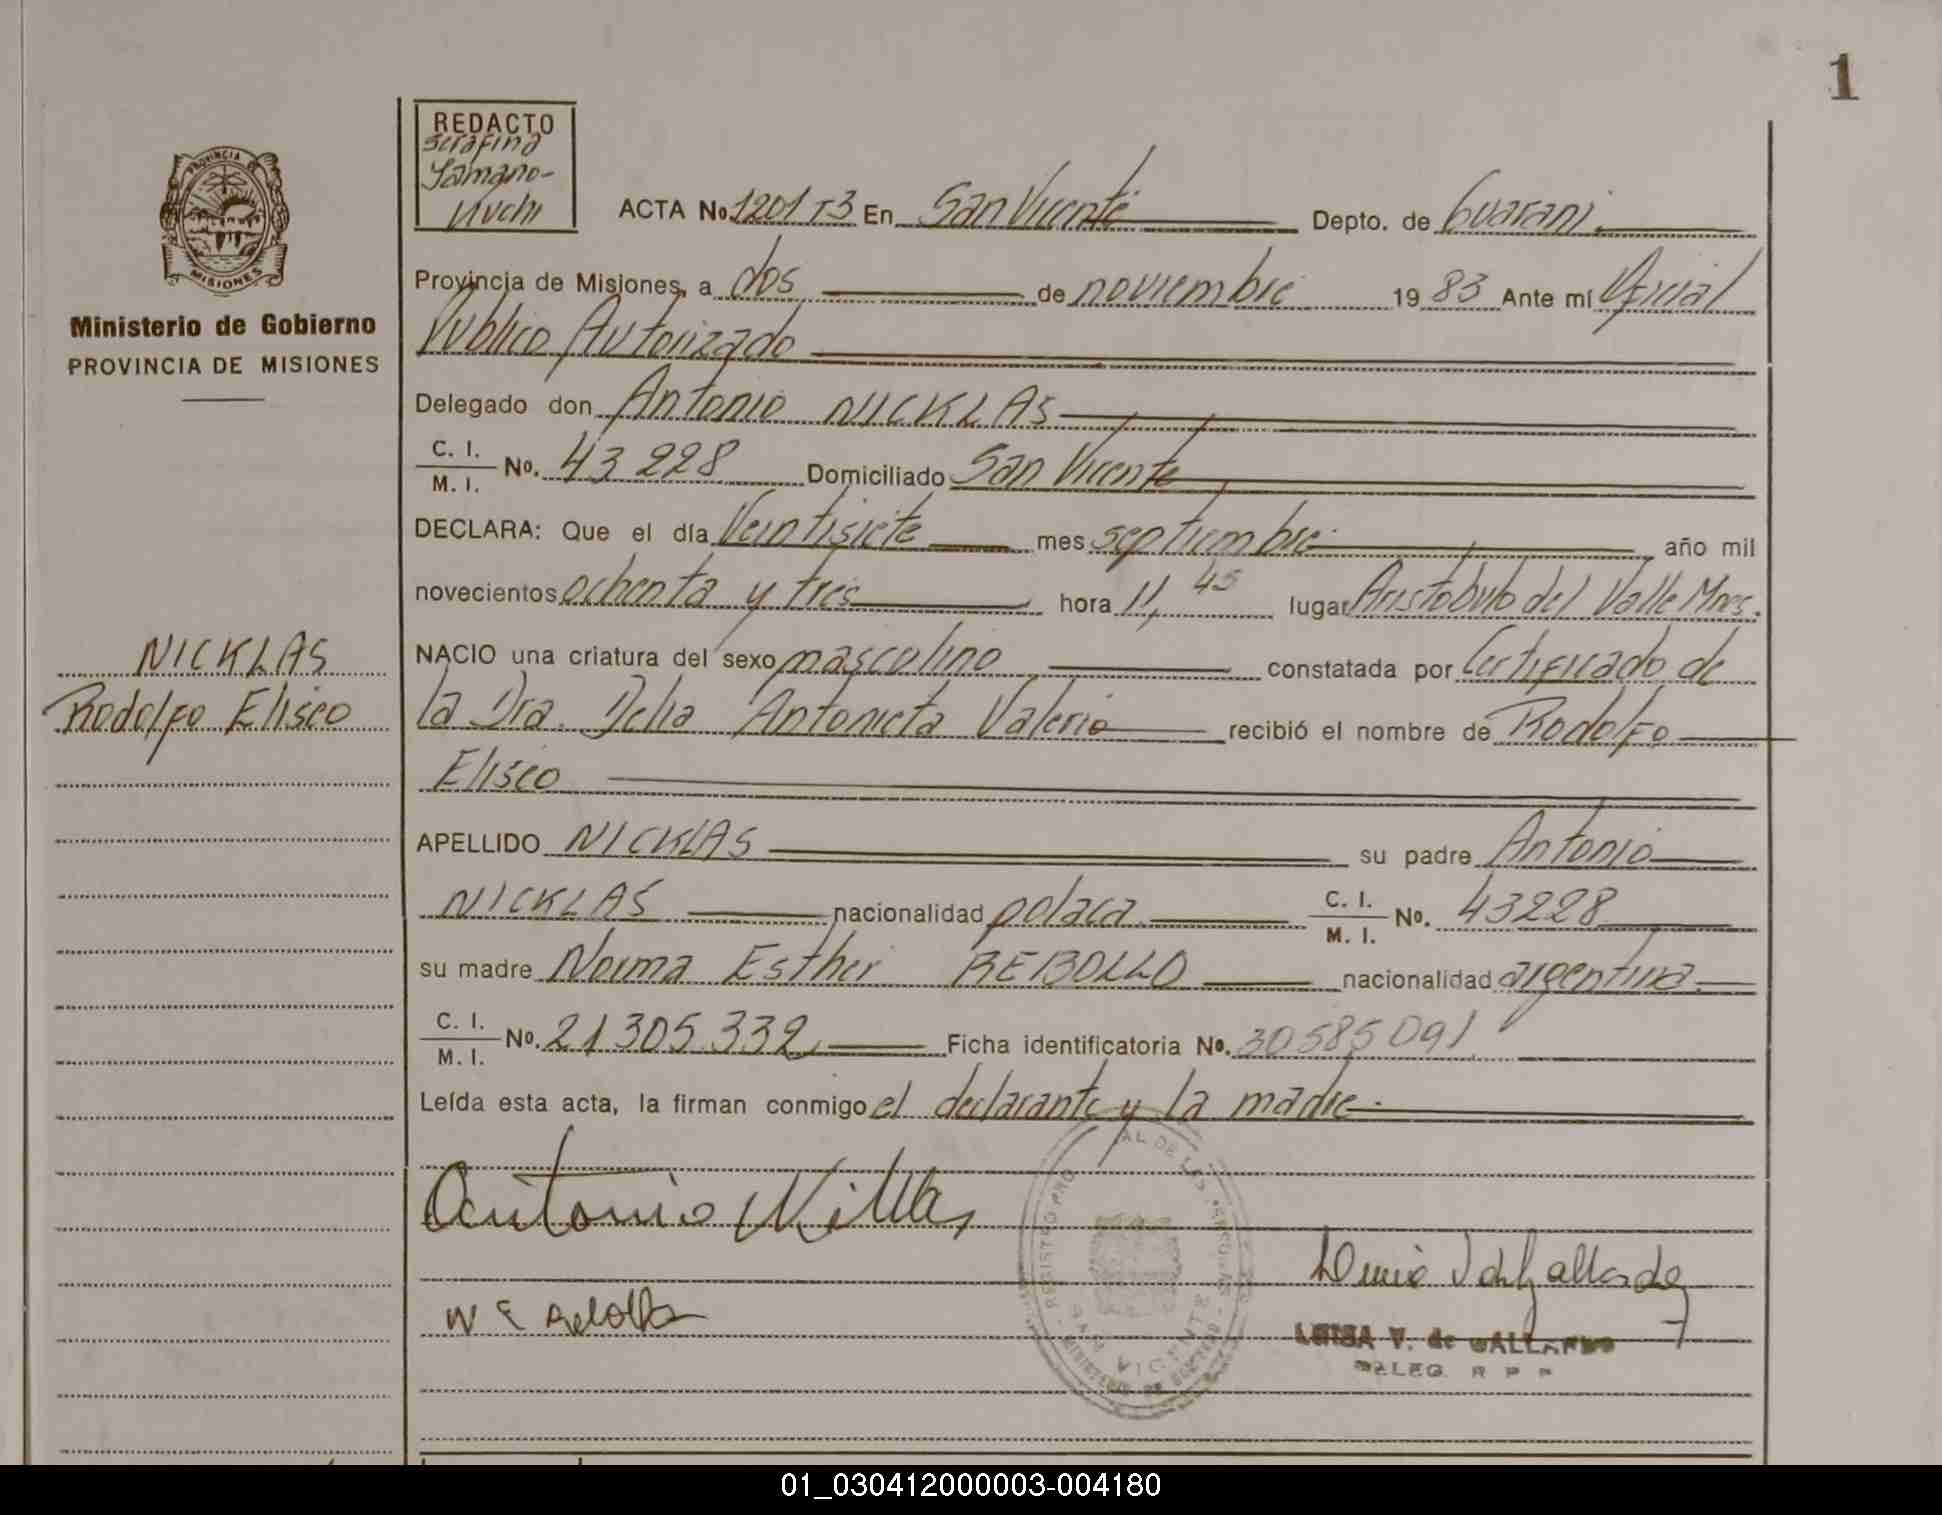 1
REDACTO
Serafina
Yamano-
uchi
PROVINCIA DE
MISIONES
Ministerio de Gobierno
PROVINCIA DE MISIONES
ACTA No. 1201 T3 En San Vicente Depto. de Guarani
Provincia de Misiones, a dos de noviembre 19 83 Ante mí Oficial
Publico Autorizado
Delegado don Antonio NICKLAS
C. I.
M. I. No. 43 228 Domiciliado San Vicente
DECLARA: Que el día Veintisiete mes septiembre año mil
novecientos ochenta y tres hora 11, 45 lugar Aristobulo del Valle Mnes.
NACIO una criatura del sexo masculino constatada por Certificado de
la Dra. Delia Antonieta Valerio recibió el nombre de Rodolfo
Eliseo
NICKLAS
Rodolfo Eliseo
APELLIDO NICKLAS su padre Antonio
NICKLAS nacionalidad polaca C. I.
M. I. No. 43228
su madre Norma Esther REBOLLO nacionalidad argentina
C. I.
M. I. No. 21 305.332 Ficha identificatoria No. 30 585 091
Leída esta acta, la firman conmigo el declarante y la madre
Antonio
LUISA V. de GALLARDO
DELEG. R P P
SAN VICENTE
01_030412000003-004180